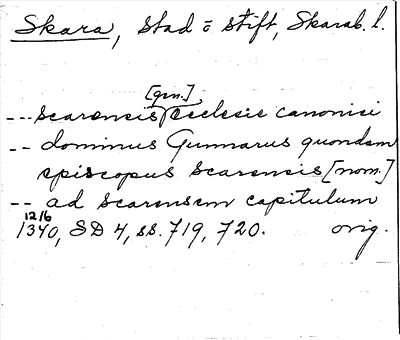 Skara, stad o stift, Skarab. l.
[gen.]
--- scarensis ecclesie canonici
-- dominus Gunnarus quondam
episcopus Scarensis [nom.]
-- ad scarensem capitulum
12/6
1340, SD 4, ss. 719, 720. orig.